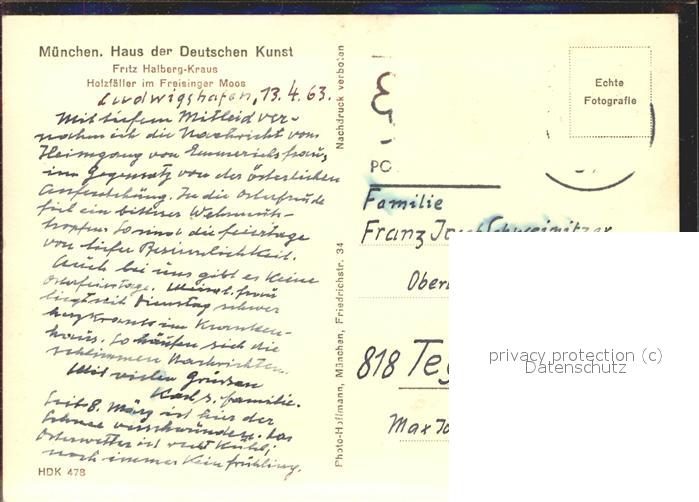 München. Haus der Deutschen Kunst
Fritz Halberg-Kraus
Holzfäller im Freisinger Moos
Ludwigshafen, 13.4.63.
Mit tiefem Mitleid ver-
nahm ich die Nachricht vom
Heimgang von Emmerichs frau,
im Gegensatz von der österlichen
Auferstehung. In die Osterfreude
fiel ein bitterer Wehmuts-
tropfen. So sind die feiertage
von tiefer Besinnlichkeit.
Auch bei uns gibt es keine
Osterfeiertage. frau
liegt seit Dienstag schwer
herzkrank im Kranken-
haus. So häufen sich die
schlimmen Nachrichten.
Mit vielen Grüssen
Karl u. familie.
Seit 8. März ist hier der
Schnee verschwunden. Das
Osterwetter ist recht kühl,
noch immer kein frühling.
HDK 478
Nachdruck verboten
Photo-Hoffmann, München, Friedrichstr. 34
Echte
Fotografie
PO
Familie
Franz
Ober
818 Te
Max Jo
privacy protection (c)
Datenschutz